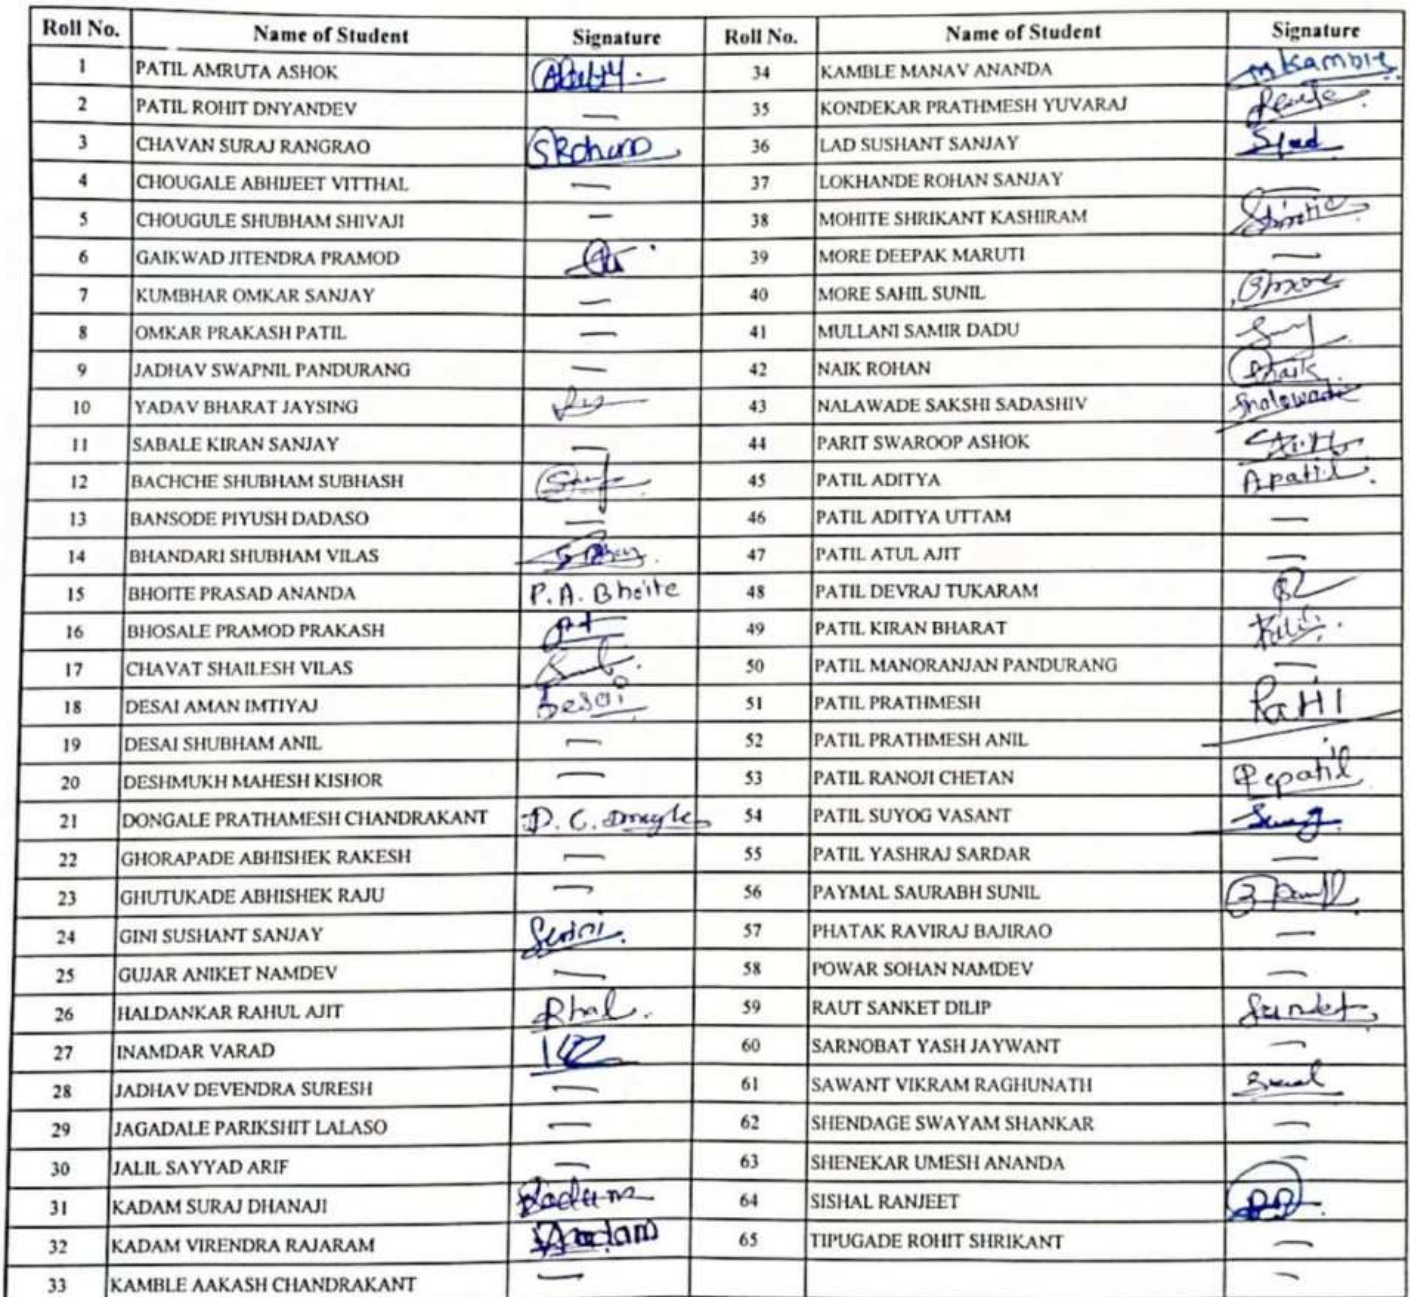 Roll No. Name of Student Signature Roll No. Name of Student Signature
1 PATIL AMRUTA ASHOK 34 KAMBLE MANAV ANANDA mkamble
2 PATIL ROHIT DNYANDEV — 35 KONDEKAR PRATHMESH YUVARAJ
3 CHAVAN SURAJ RANGRAO 36 LAD SUSHANT SANJAY
4 CHOUGALE ABHIJEET VITTHAL — 37 LOKHANDE ROHAN SANJAY —
5 CHOUGULE SHUBHAM SHIVAJI — 38 MOHITE SHRIKANT KASHIRAM
6 GAIKWAD JITENDRA PRAMOD 39 MORE DEEPAK MARUTI —
7 KUMBHAR OMKAR SANJAY — 40 MORE SAHIL SUNIL
8 OMKAR PRAKASH PATIL — 41 MULLANI SAMIR DADU
9 JADHAV SWAPNIL PANDURANG — 42 NAIK ROHAN
10 YADAV BHARAT JAYSING 43 NALAWADE SAKSHI SADASHIV
11 SABALE KIRAN SANJAY — 44 PARIT SWAROOP ASHOK
12 BACHCHE SHUBHAM SUBHASH 45 PATIL ADITYA Apatil.
13 BANSODE PIYUSH DADASO — 46 PATIL ADITYA UTTAM —
14 BHANDARI SHUBHAM VILAS 47 PATIL ATUL AJIT —
15 BHOITE PRASAD ANANDA P.A. Bhoite 48 PATIL DEVRAJ TUKARAM
16 BHOSALE PRAMOD PRAKASH 49 PATIL KIRAN BHARAT
17 CHAVAT SHAILESH VILAS 50 PATIL MANORANJAN PANDURANG —
18 DESAI AMAN IMTIYAJ Desai 51 PATIL PRATHMESH
19 DESAI SHUBHAM ANIL — 52 PATIL PRATHMESH ANIL
20 DESHMUKH MAHESH KISHOR — 53 PATIL RANOJI CHETAN
21 DONGALE PRATHAMESH CHANDRAKANT D. C. Dongle 54 PATIL SUYOG VASANT
22 GHORAPADE ABHISHEK RAKESH — 55 PATIL YASHRAJ SARDAR —
23 GHUTUKADE ABHISHEK RAJU — 56 PAYMAL SAURABH SUNIL
24 GINI SUSHANT SANJAY 57 PHATAK RAVIRAJ BAJIRAO —
25 GUJAR ANIKET NAMDEV — 58 POWAR SOHAN NAMDEV —
26 HALDANKAR RAHUL AJIT Rhal. 59 RAUT SANKET DILIP
27 INAMDAR VARAD 60 SARNOBAT YASH JAYWANT —
28 JADHAV DEVENDRA SURESH — 61 SAWANT VIKRAM RAGHUNATH
29 JAGADALE PARIKSHIT LALASO — 62 SHENDAGE SWAYAM SHANKAR —
30 JALIL SAYYAD ARIF — 63 SHENEKAR UMESH ANANDA —
31 KADAM SURAJ DHANAJI 64 SISHAL RANJEET
32 KADAM VIRENDRA RAJARAM 65 TIPUGADE ROHIT SHRIKANT —
33 KAMBLE AAKASH CHANDRAKANT — —